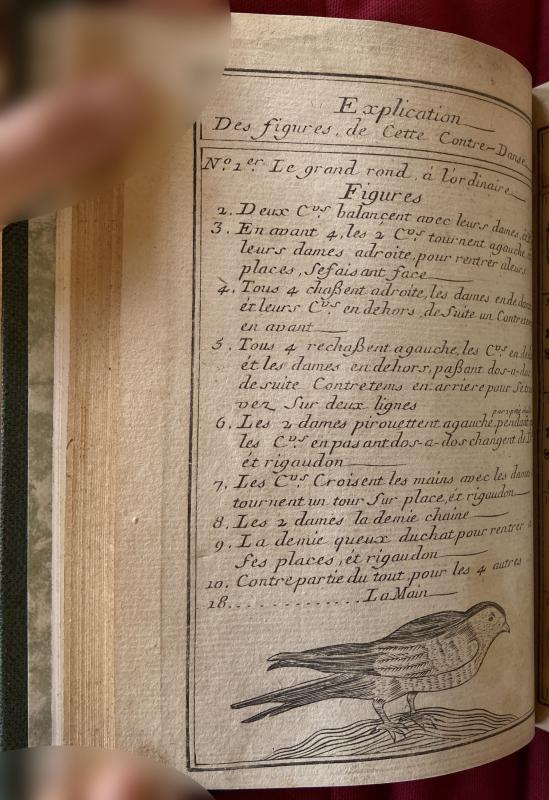 Explication
Des figures, de Cette Contre-Danse
N.o 1.er Le grand rond, à l'ordinaire
Figures
2. Deux C.vs balançent avec leurs dames,
3. En avant 4, les 2 C.vs tournent agauche,
leurs dames adroite, pour rentrer aleurs
places, Sefaisant face
4. Tous 4 chaßent adroite, les dames
ét leurs C.vs en dehors, de suite un
en avant
5. Tous 4 rechaßent agauche, les C.vs
ét les dames en dehors, paßant dos-a-dos
de suite Contretems en arriere pour
vez Sur deux lignes
6. Les 2 dames pirouettent agauche,
les C.vs en pasant dos-a-dos changent
ét rigaudon
7. Les C.vs Croisent les mains avec les dames
tournent un tour Sur place, et rigaudon
8. Les 2 dames la demie chaine
9. La demie queux duchat, pour rentrer a
Ses places, ét rigaudon
10. Contrepartie du tout, pour les 4 autres
18. . . . . . . . . . . . . La Main